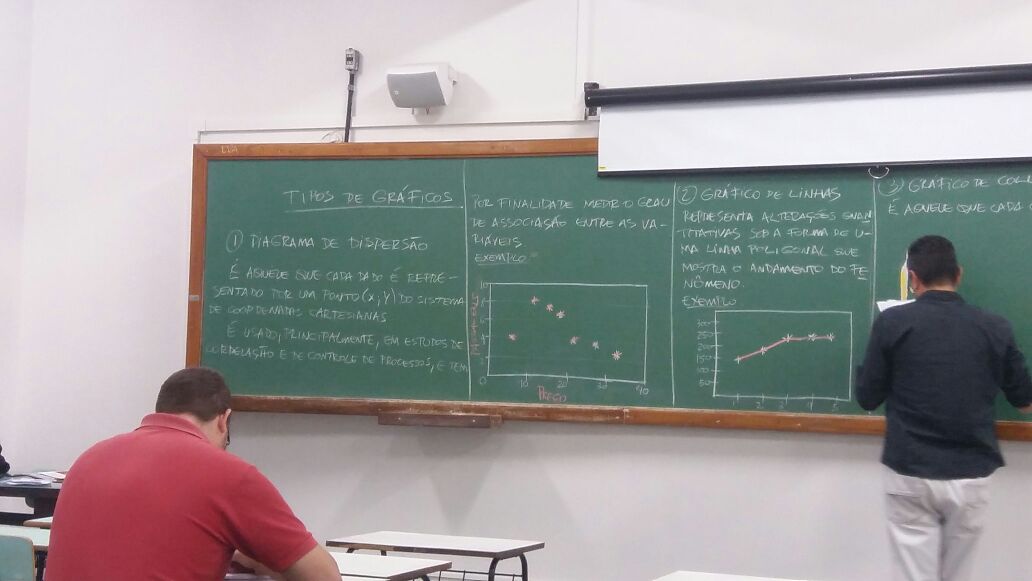 TIPOS DE GRÁFICOS
① DIAGRAMA DE DISPERSÃO
É AQUELE QUE CADA DADO É REPRE-
SENTADO POR UM PONTO (X,Y) DO SISTEMA
DE COORDENADAS CARTESIANAS
É USADO, PRINCIPALMENTE, EM ESTUDOS DE
CORRELAÇÃO E DE CONTROLE DE PROCESSOS, E TEM
POR FINALIDADE MEDIR O GRAU
DE ASSOCIAÇÃO ENTRE AS VA-
RIÁVEIS
EXEMPLO
10
0
10 20 30 40
PREÇO
② GRÁFICO DE LINHAS
REPRESENTA ALTERAÇÕES QUAN
TITATIVAS SOB A FORMA DE U-
MA LINHA POLIGONAL QUE
MOSTRA O ANDAMENTO DO FE
NÔMENO.
EXEMPLO
300
250
200
150
100
50
1 2 3 4 5
③ GRÁFICO DE COLU
É AQUELE QUE CADA